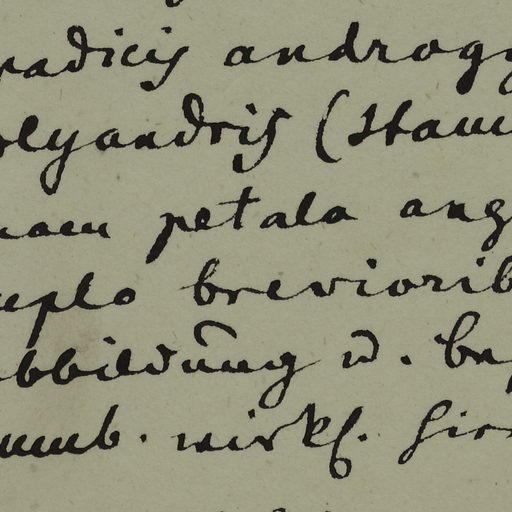 padicis androgy
olyandris (Stam
nam petala ang
uplo breviorib
bbildung u. be
umb. wirkl. hier